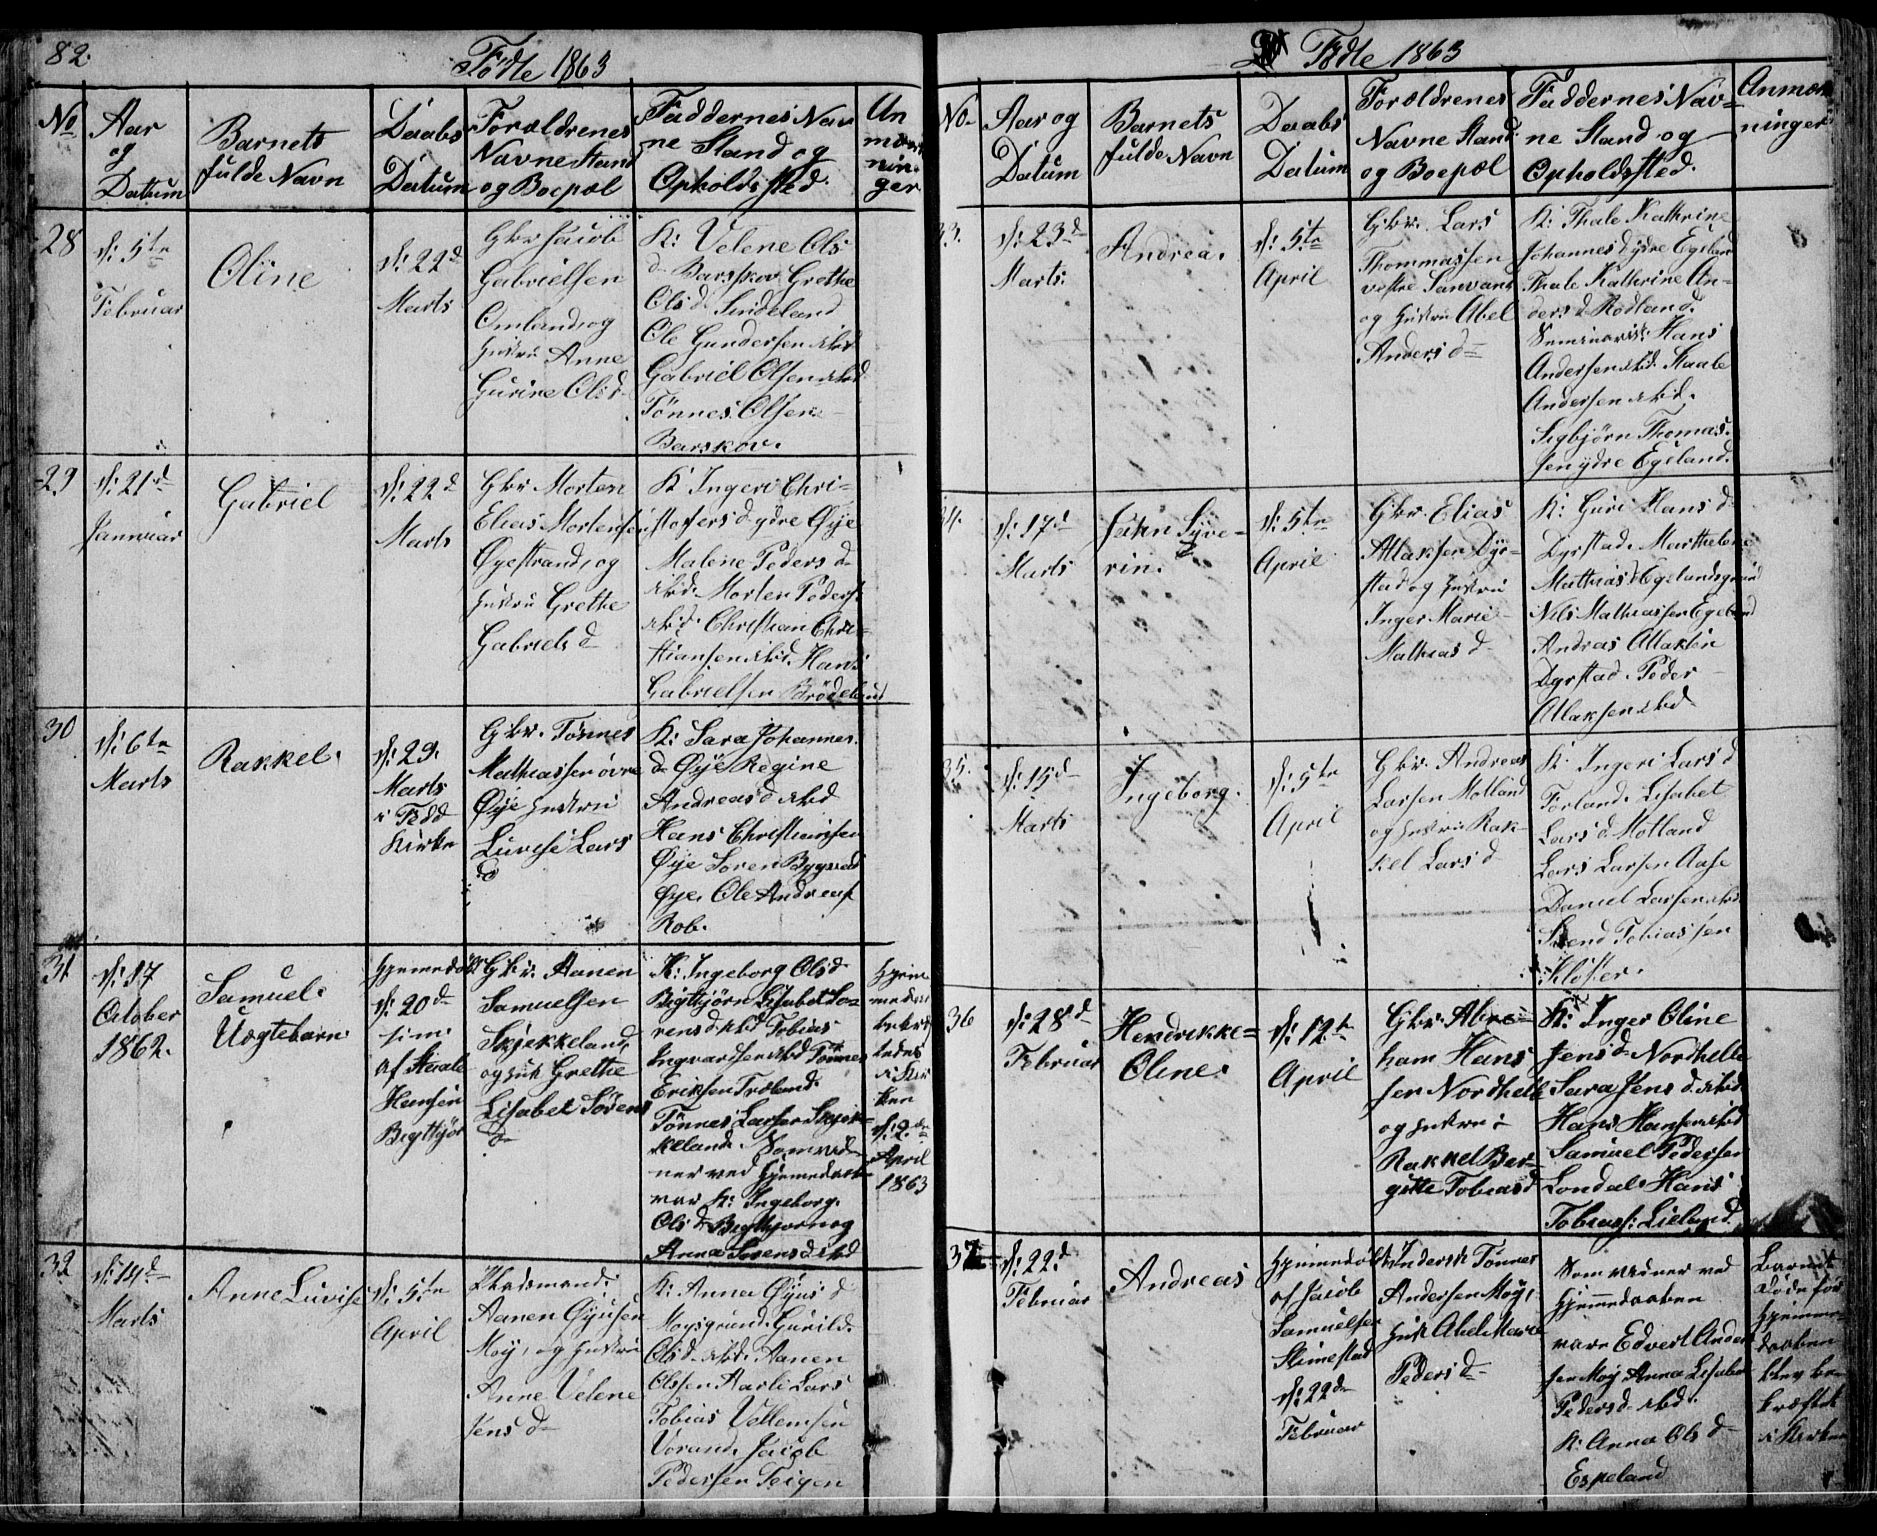 82.
Fødte 1863
No
Aar
og
Datum
Barnets
fulde Navn
Daabs
Datum
Forældrenes
Navne Stand
og Boepæl
Faddernes Nav
ne Stand og
Opholdssted.
An
mærk
nin
ger
28
d: 5te
Februar
Oline
d: 22d
Marts
Gbr Jacob
Gabrielsen
Omland, og
Hustru Anne
Gurine Olsd
K: Velene Ols
d Barskov Grethe
Olsd. Sindeland
Ole Gundersen ibid
Gabriel Olsen ibid
Tönnes Olsen
Barskov.
29
d: 21d
Januar
Gabriel
d: 22d
Marts
Gbr Morten
Elias Mortensen
Øyestrand, og
Hustru Grethe
Gabriels d
K Ingeri Chri-
stofers d ydre Øye
Malene Peders d
ibid. Morten Peders.
ibid. Christian Chri-
stiansen ibid. Hans
Gabrielsen Brödeland
30
d: 6te
Marts
Rakkel.
d: 29.
Marts
i Fedd
Kirke
Gbr. Tönnes
Mathiassen övre
Øye Hustru
Luvise Lars
d
K: Sara Johannes
d Øye Regine
Andreas d ibid
Hans Christiansen
Øye Soren Bygvad
Øye. Ole Andreas
Rob.
31
d: 17
October
1862.
Samuel.
Uægtebarn
Hjemedøbt
d: 20d
sim:
af Staale
Hansen
Bigthjör
Gbr. Aanen
Samuelsen
Skjekkeland
og Hust Grethe
Lisabet Sørens
d
K: Ingeborg Olsd
Bigthjörn Lisabet So-
rensd ibid Tobias
Ingvarsen ibid Tönnes
Eriksen Træland.
Tönnes Larsen Skjek-
keland. Som vid-
ner ved Hjemedaab
var K: Ingeborg
Olsd Bigthjorn og
Anna Sörensd ibid
Hjem
medaab
bekræf
tedes
i Kir
ken
d: 2den
April
1863
32
d: 14d
Marts
Anne Luvise
d: 5te
April
Pladsmand:
Aanen Øyusen
Moy, og Hustru
Anne Velene
Jens d
K: Anna Øyus d
Moysgrund. Gurild.
Olsd. ibid. Aanen
Olssen Aarli Lars
Tobias Vellemsen
Vorand. Jacob
Pedersen Teigen
Fødte 1863
No.
Aar og
Datum
Barnets
fulde Navn
Daabs
Datum
Forældrenes
Navne Stand
og Boepæl
Faddernes Nav=
ne Stand og
Opholdssted.
Anmærk
ninger
33.
d: 23d
Marts.
Andrea.
d: 5te
April
Gbr. Lars
Thommassen
vestre Sanvand
og Hustru Abel
Anders d
K: Thale Kathrine
Johannes d ydre Egeland
Thale Kathrine An-
ders d Rödland.
Seminarist: Hans
Andersen ibid. Staale
Andersen ibid.
Sigbjörn Thomas.
sen ydre Egeland.
34.
d: 17d
Marts
Jahn Syve-
rin.
d: 5te
April
Gbr. Elias
Atlaksen Dyr-
stad og Hustru
Inger Marie
Mathias d
K: Guri Hans d
Dyrstad. Marthelene
Mathias d Egelandsgrund
Nils Mathiassen Egeland
Andreas Atlaksen
Dyrstad. Peder
Atlaksen ibid
35.
d: 15d
Marts
Ingeborg.
d: 5te
April
Gbr. Andreas
Larsen Motland
og Hustru Rak-
kel Lars d
K: Ingeri Lars d
Forland. Lisabet
Lars d. Motland
Lars Larsen Aase
Daniel Larsen ibid
Svend Tobiassen
Kloster.
36
d: 28d
Februar
Hendrikke=
Oline.
d: 12te
April
Gbr. Abra=
ham Hans
sen Nordhelle
og Hustru
Rakkel Ber-
gitte Tobiasd
K: Inger Oline
Jensd. Nordhelle
Sara Jens d. ibid
Hans Hansen ibid
Samuel Pedersen
Londal. Hans
Tobiass: Lieland.
37
d: 22d
Februar
Andreas
Hjemedøbt
af Jacob
Samuelsen
Stimestad
d: 22d
Februar
Inderst Tönnes
Andersen Moy,
Hust Abel Marie
Peders d
Som vidner ved
Hjemedaaben
vare Edvert Ander
sen Moy Anna Lisabet
Pedersd. ibid.
K: Anna Ols d
Espeland
Barnet
döde før
Hjemme-
daaben
blev be-
kræftet
i Kirken